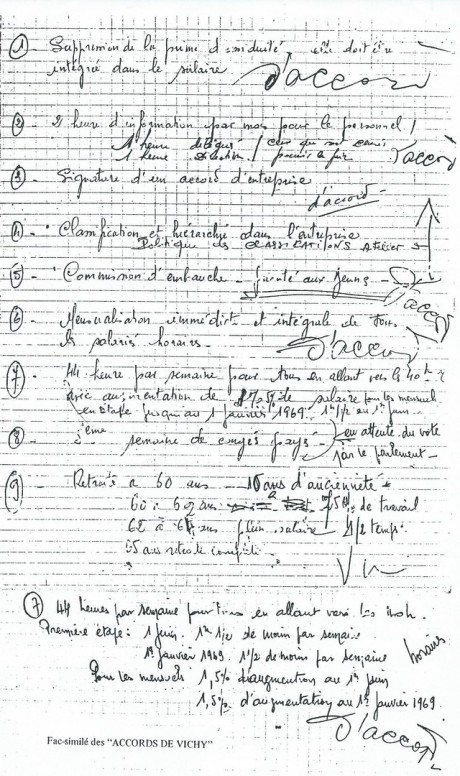 ① - Suppression de la prime d'assiduité elle doit être
intégrée dans le salaire d'accord
② - 2 heure d'information par mois pour le personnel /
1 heure délégué / ceux qui
1 heure
d'accord
③ - Signature d'un accord d'entreprise
d'accord -
④ - Classification et hiérarchie dans l'entreprise
Politique des CLASSIFICATIONS Atelier
⑤ - Commission d'embauche - priorité aux jeunes -
d'accord
⑥ - Mensualisation immédiate et intégrale de tous
les salariés horaires. d'accord
7 - 44 heure par semaine pour tous en allant vers le 40h
avec augmentation de salaire pour les mensuel
en étape jusqu'au 1 janvier 1969. 1h 1/2 au 1er juin.
⑧ - 5ème semaine de congés payés - en attente du vote
par le parlement -
⑨ - Retraite a 60 ans - 10 ans d'ancienneté
60 a 62 ans 75% de travail
62 à 65 ans plein salaire 1/2 temps.
65 ans retraite complète -
Vu
⑦ 44 heures par semaine pour tous en allant vers les 40h.
Première étape : 1 juin. 1h 1/2 de moin par semaine
1er janvier 1969. 1h/2 de moins par semaine horaires
Pour les mensuels 1,5% d'augmention au 1er juin
1,5% d'augmentation au 1er janvier 1969.
d'accord
Fac-similé des "ACCORDS DE VICHY"